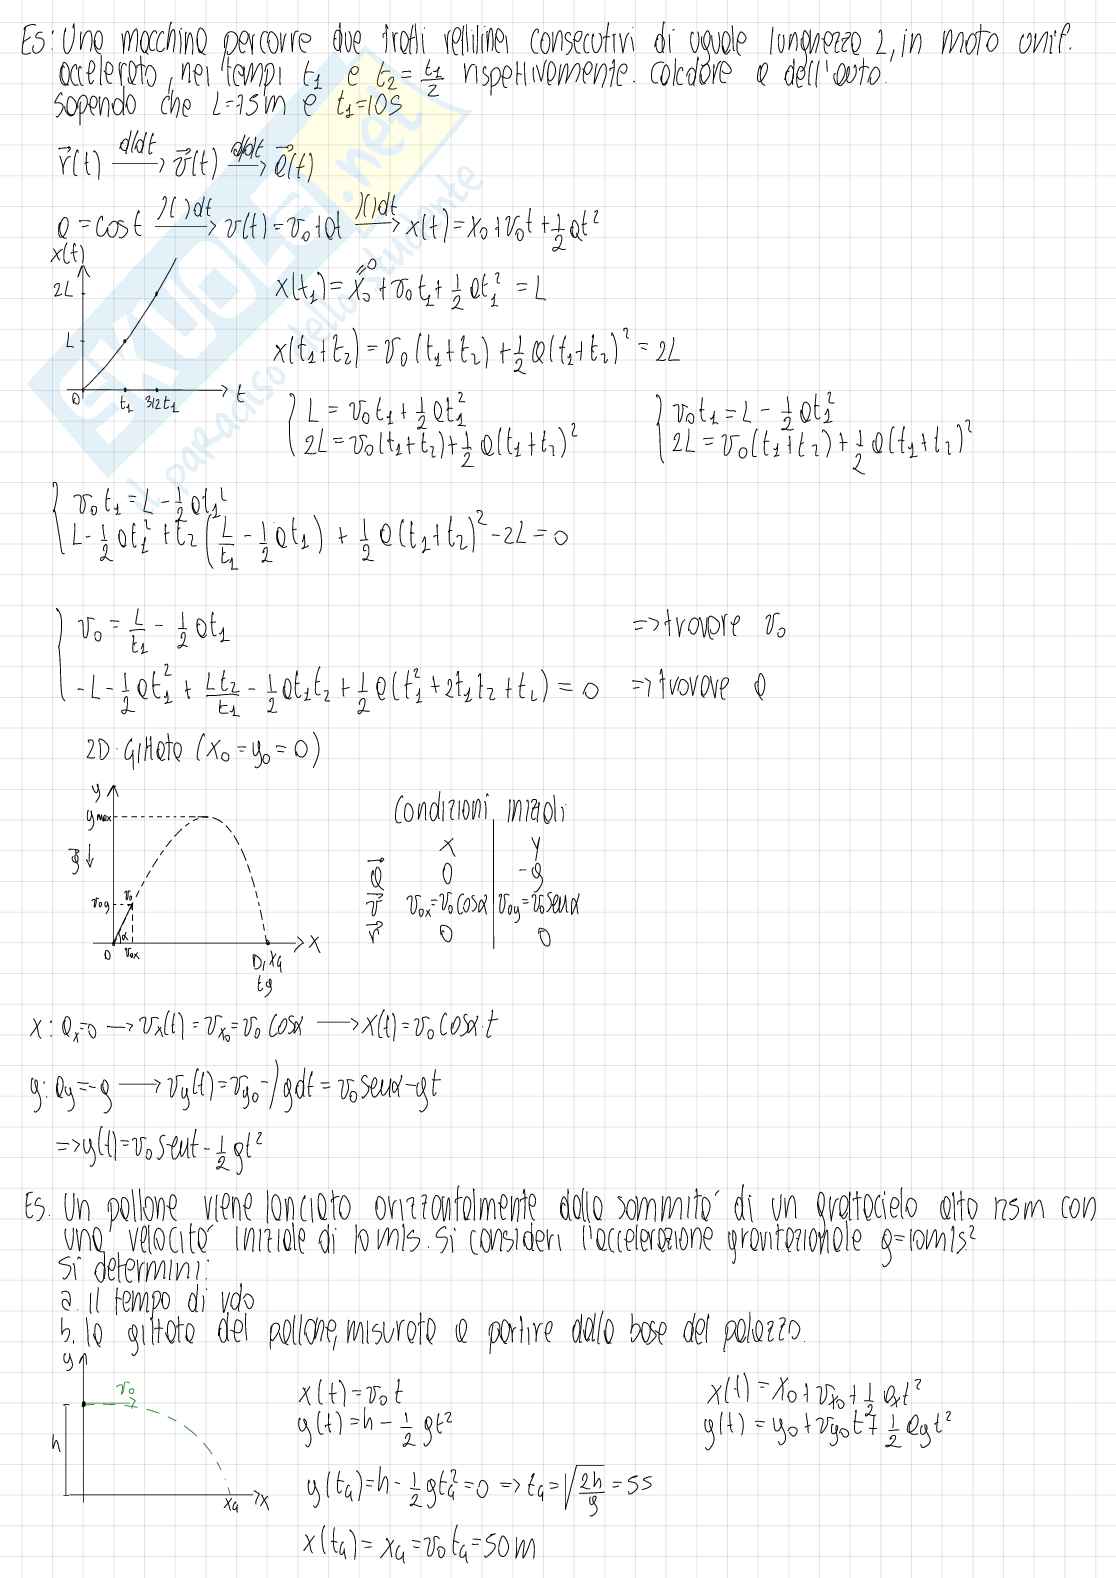 Es: Una macchina percorre due tratti rettilinei consecutivi di uguale lunghezza L, in moto unif.
accelerato, nei tempi t₁ e t₂ = t₁/2 rispettivamente. Calcolare a dell'auto.
sapendo che L=75m e t₁=10s
r⃗(t) —d/dt→ v⃗(t) —d/dt→ a⃗(t)
a = cost —∫( )dt→ v(t) = v₀+at —∫( )dt→ x(t) = x₀+v₀t+½at²
x(t)
2L
L
0 t₁ 3/2t₁ t
x(t₁) = x₀ + v₀t₁ + ½at₁² = L
=0
x(t₁+t₂) = v₀(t₁+t₂) + ½a(t₁+t₂)² = 2L
{ L = v₀t₁ + ½at₁²
2L = v₀(t₁+t₂) + ½a(t₁+t₂)²
{ v₀t₁ = L - ½at₁²
2L = v₀(t₁+t₂) + ½a(t₁+t₂)²
{ v₀t₁ = L - ½at₁²
L - ½at₁² + t₂(L/t₁ - ½at₁) + ½a(t₁+t₂)² - 2L = 0
{ v₀ = L/t₁ - ½at₁ => trovare v₀
-L - ½at₁² + Lt₂/t₁ - ½at₁t₂ + ½a(t₁²+2t₁t₂+t₂) = 0 => trovare a
2D: Gittata (x₀ = y₀ = 0)
y
y max
g⃗ ↓
v₀y v₀
α
0 v₀x x
D, xG
tg
Condizioni iniziali
x y
a⃗ 0 -g
v⃗ v₀x = v₀cosα v₀y = v₀senα
r⃗ 0 0
x: ax=0 → vx(t) = vx₀ = v₀cosα → x(t) = v₀cosα t
y: ay=-g → vy(t) = vy₀ - ∫gdt = v₀senα - gt
=> y(t) = v₀sent - ½gt²
Es. Un pallone viene lanciato orizzontalmente dalla sommità di un grattacielo alto 125m con
una velocità iniziale di 10 m/s. Si consideri l'accelerazione gravitazionale g=10m/s²
Si determini:
a. Il tempo di vdo
b. la gittata del pallone, misurata a partire dalla base del palazzo.
y
v₀
h
xG x
x(t) = v₀t
y(t) = h - ½gt²
x(t) = x₀ + vx₀ + ½axt²
y(t) = y₀ + vy₀t + ½ayt²
y(tG) = h - ½gtG² = 0 => tG = √(2h/g) = 5s
x(tG) = xG = v₀tG = 50m
SKUOLA.net
il paradiso dello studente